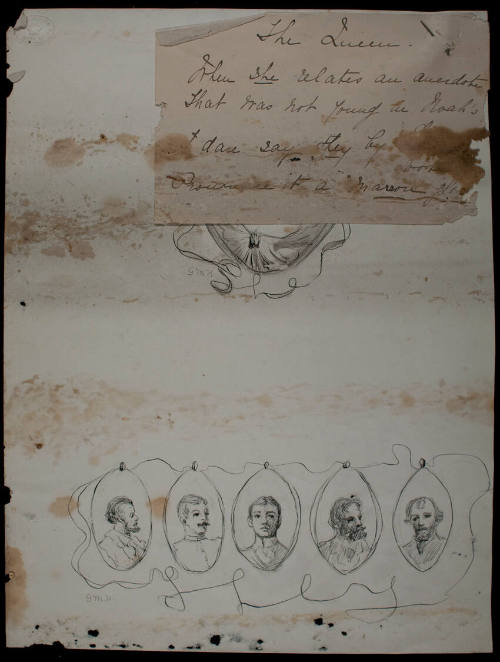 The Queen.
When she relates an anecdote
That was not young in Noah's
I dare say they by
Pronounce it a "Marron
G.M.W.
G.M.W.